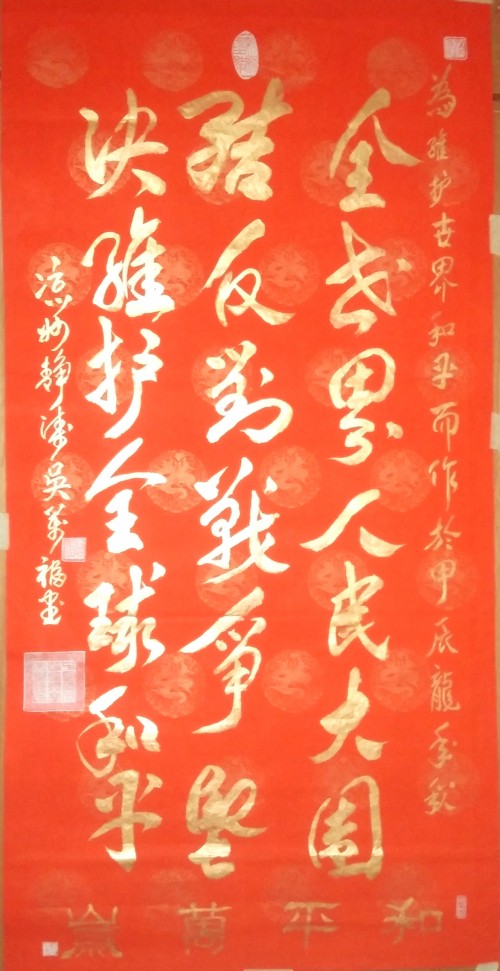 為維护世界和平而作於甲辰龍年秋
全世界人民大團
結反對戰爭堅
决維护全球和平
静涛吳萬福書
和平萬歲